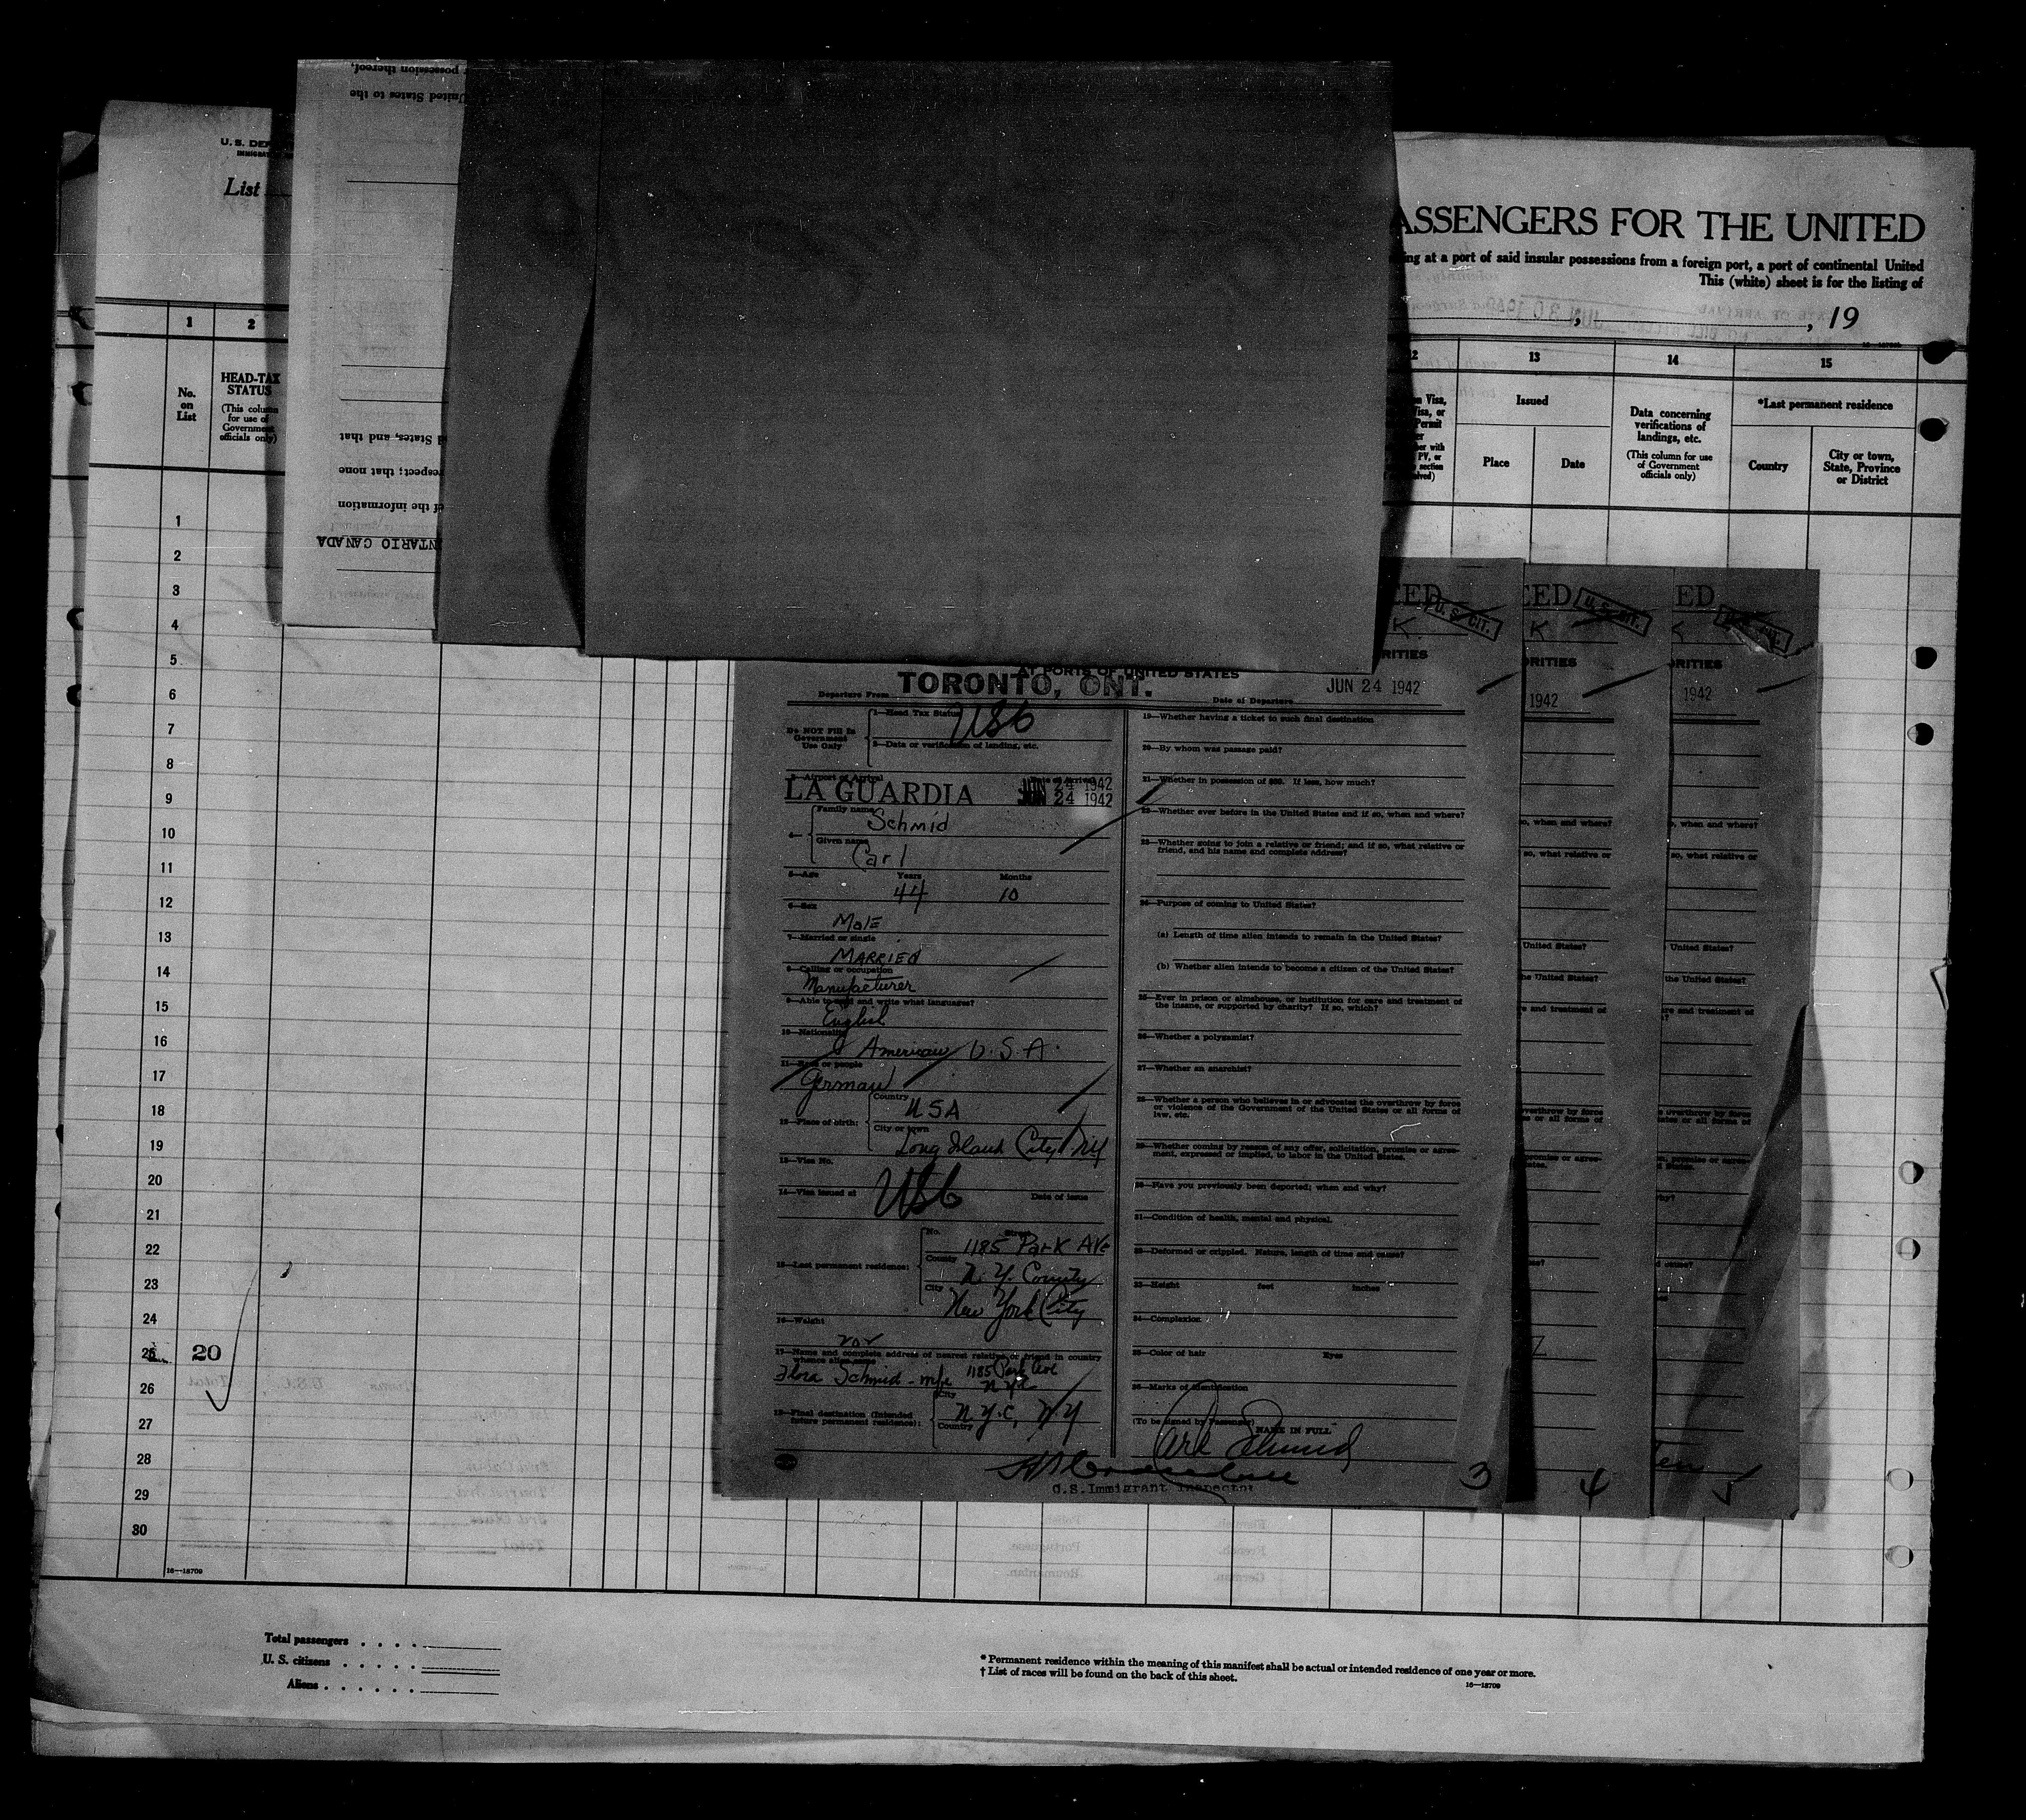 possession thereof,
United States to the
U. S. DEP
IMMIGRAT
List
ASSENGERS FOR THE UNITED
ing at a port of said insular possessions from a foreign port, a port of continental United
This (white) sheet is for the listing of
, 19
1
2
12
13
14
15
No.
on
List
HEAD-TAX
STATUS
(This column
for use of
Government
officials only)
States, and that
respect; that none
of the information
ONTARIO CANADA
Issued
Place
Date
Data concerning
verifications of
landings, etc.
(This column for use
of Government
officials only)
*Last permanent residence
Country
City or town,
State, Province
or District
1
2
3
4
5
6
7
8
9
10
11
12
13
14
15
16
17
18
19
20
21
22
23
24
25
20
26
27
28
29
30
16—18709
AT PORTS OF UNITED STATES
Departure From TORONTO, ONT.
Date of Departure JUN 24 1942
Do NOT Fill In
Government
Use Only
1—Head Tax Status USC
2—Data or verification of landing, etc.
3—Airport of Arrival
Date of Arrival
LA GUARDIA JUN 24 1942
JUN 24 1942
4— Family name Schmid
Given name Carl
5—Age Years 44 Months 10
6—Sex Male
7—Married or single MARRIED
8—Calling or occupation
Manufacturer
9—Able to read and write what languages?
English
10—Nationality American U.S.A.
11—Race or people
German
12—Place of birth: Country USA
City or town
Long Island City NY
13—Visa No.
14—Visa issued at USC Date of issue
15—Last permanent residence:
No. Street
1185 Park Ave
County N.Y. County
City New York City
16—Weight
17—Name and complete address of nearest relative or friend in country
whence alien came
Flora Schmid - wife 1185 Park Ave
NYC
18—Final destination (Intended
future permanent residence):
City N.Y.C, N.Y
Country
19—Whether having a ticket to such final destination
20—By whom was passage paid?
21—Whether in possession of $50. If less, how much?
22—Whether ever before in the United States and if so, when and where?
23—Whether going to join a relative or friend; and if so, what relative or
friend, and his name and complete address?
24—Purpose of coming to United States?
(a) Length of time alien intends to remain in the United States?
(b) Whether alien intends to become a citizen of the United States?
25—Ever in prison or almshouse, or institution for care and treatment of
the insane, or supported by charity? If so, which?
26—Whether a polygamist?
27—Whether an anarchist?
28—Whether a person who believes in or advocates the overthrow by force
or violence of the Government of the United States or all forms of
law, etc.
29—Whether coming by reason of any offer, solicitation, promise or agree-
ment, expressed or implied, to labor in the United States.
30—Have you previously been deported; when and why?
31—Condition of health, mental and physical.
32—Deformed or crippled. Nature, length of time and cause?
33—Height feet inches
34—Complexion
35—Color of hair Eyes
36—Marks of identification
(To be signed by Passenger)
NAME IN FULL
Carl Schmid
U.S. Immigrant Inspector
3
CED
U. S. CIT.
K.
RITIES
CED
U. S. CIT.
K
ORITIES
1942
o, when and where?
so, what relative or
United States?
he United States?
4
ED
ORITIES
1942
, when and where?
so, what relative or
United States?
the United States?
5
Total passengers . . . .
U. S. citizens . . . . .
Aliens . . . . . .
* Permanent residence within the meaning of this manifest shall be actual or intended residence of one year or more.
† List of races will be found on the back of this sheet.
16—18709